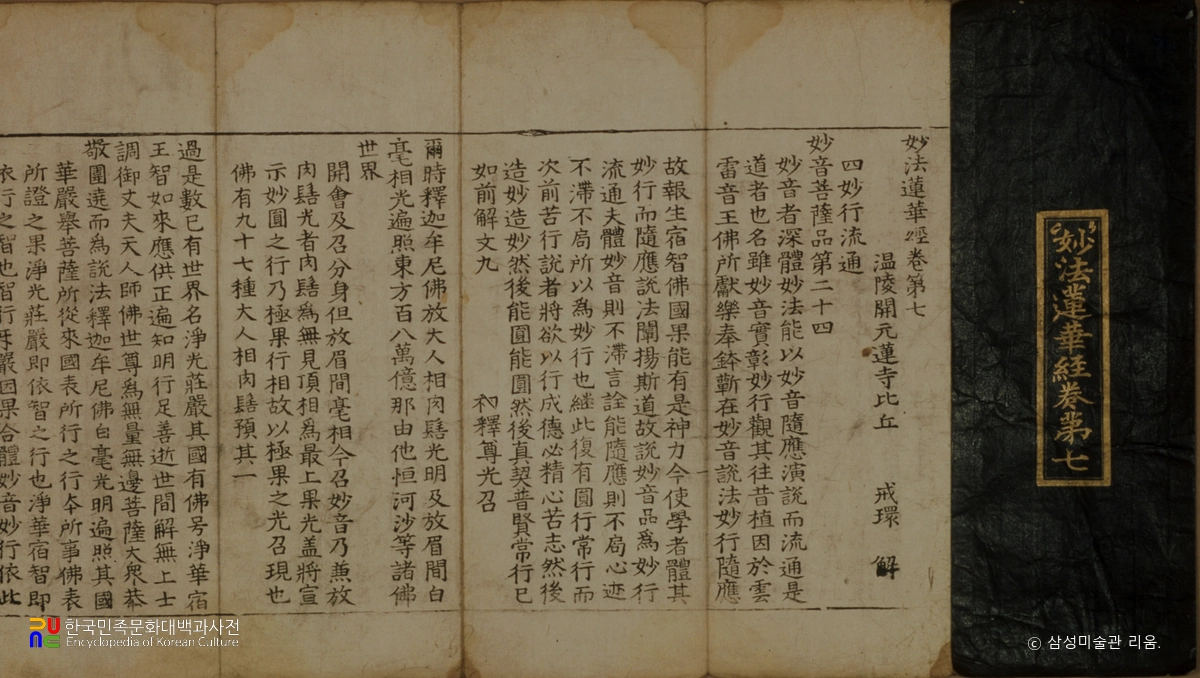 妙法蓮華經卷第七
妙法蓮華經卷第七
溫陵開元蓮寺比丘 戒環 解
四妙行流通
妙音菩薩品第二十四
妙音者深體妙法能以妙音隨應演說而流通是
道者也名雖妙音實彰妙行觀其往昔植因於雲
雷音王佛所獻樂奉鉢蘄在妙音說法妙行隨應
故報生宿智佛國果能有是神力今使學者體其
妙行而隨應說法闡揚斯道故說妙音品爲妙行
流通夫體妙音則不滯言詮能隨應則不局心迹
不滯不局所以爲妙行也繼此復有圓行常行而
次前苦行說者將欲以行成德必精心苦志然後
造妙造妙然後能圓能圓然後真契普賢常行已
如前解文九 初釋尊光召
爾時釋迦牟尼佛放大人相肉髻光明及放眉間白
毫相光遍照東方百八萬億那由他恒河沙等諸佛
世界
開會及召分身但放眉間毫相今召妙音乃兼放
肉髻光者肉髻爲無見頂相爲最上果光盖將宣
示妙圓之行乃極果行相故以極果之光召現也
佛有九十七種大人相肉髻預其一
過是數已有世界名淨光莊嚴其國有佛号淨華宿
王智如來應供正遍知明行足善逝世間解無上士
調御丈夫天人師佛世尊爲無量無邊菩薩大衆恭
敬圍遶而爲說法釋迦牟尼佛白毫光明遍照其國
華嚴擧菩薩所從來國表所行之行本所事佛表
所證之果淨光莊嚴即依智之行也淨華宿智即
依行之智也智行互嚴因果合體妙音妙行依此
한국민족문화대백과사전
Encyclopedia of Korean Culture
© 삼성미술관 리움.